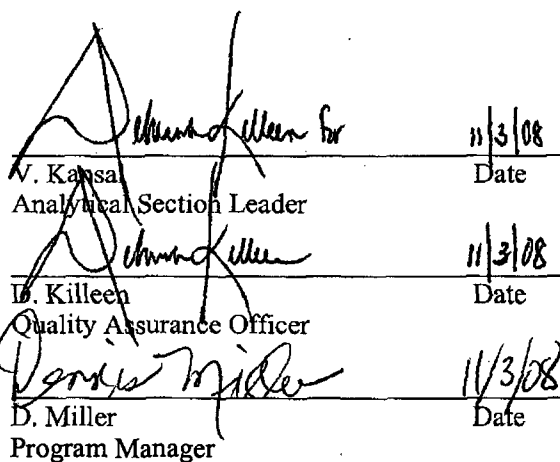 Deborah Killeen for 11/3/08
V. Kansal Date
Analytical Section Leader
Deborah Killeen 11/3/08
D. Killeen Date
Quality Assurance Officer
Dennis Miller 11/3/08
D. Miller Date
Program Manager